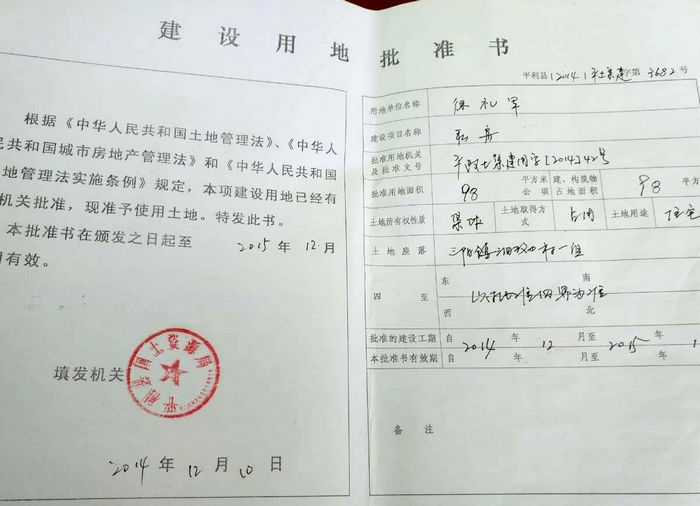 建设用地批准书
根据《中华人民共和国土地管理法》、《中华人
民共和国城市房地产管理法》和《中华人民共和国
地管理法实施条例》规定，本项建设用地已经有
机关批准，现准予使用土地。特发此书。
本批准书在颁发之日起至 2015 年 12 月
有效。
填发机关
平利县国土资源局
2014 年 12 月 10 日
平利县[2014]平土集建字第 3682 号
用地单位名称 徐礼军
建设项目名称 私房
批准用地机关及批准文号 平政土集建用字[2014]42号
批准用地面积 98 平方米 公顷 建、构筑物占地面积 98 平方
土地所有权性质 集体 土地取得方式 占用 土地用途 住宅
土地座落 三阳镇 村一组
四至 东 南 西 北 以 四界为准
批准的建设工期 自 2014 年 12 月至 2015 年 1
本批准书有效期 自 年 月至 年
备注